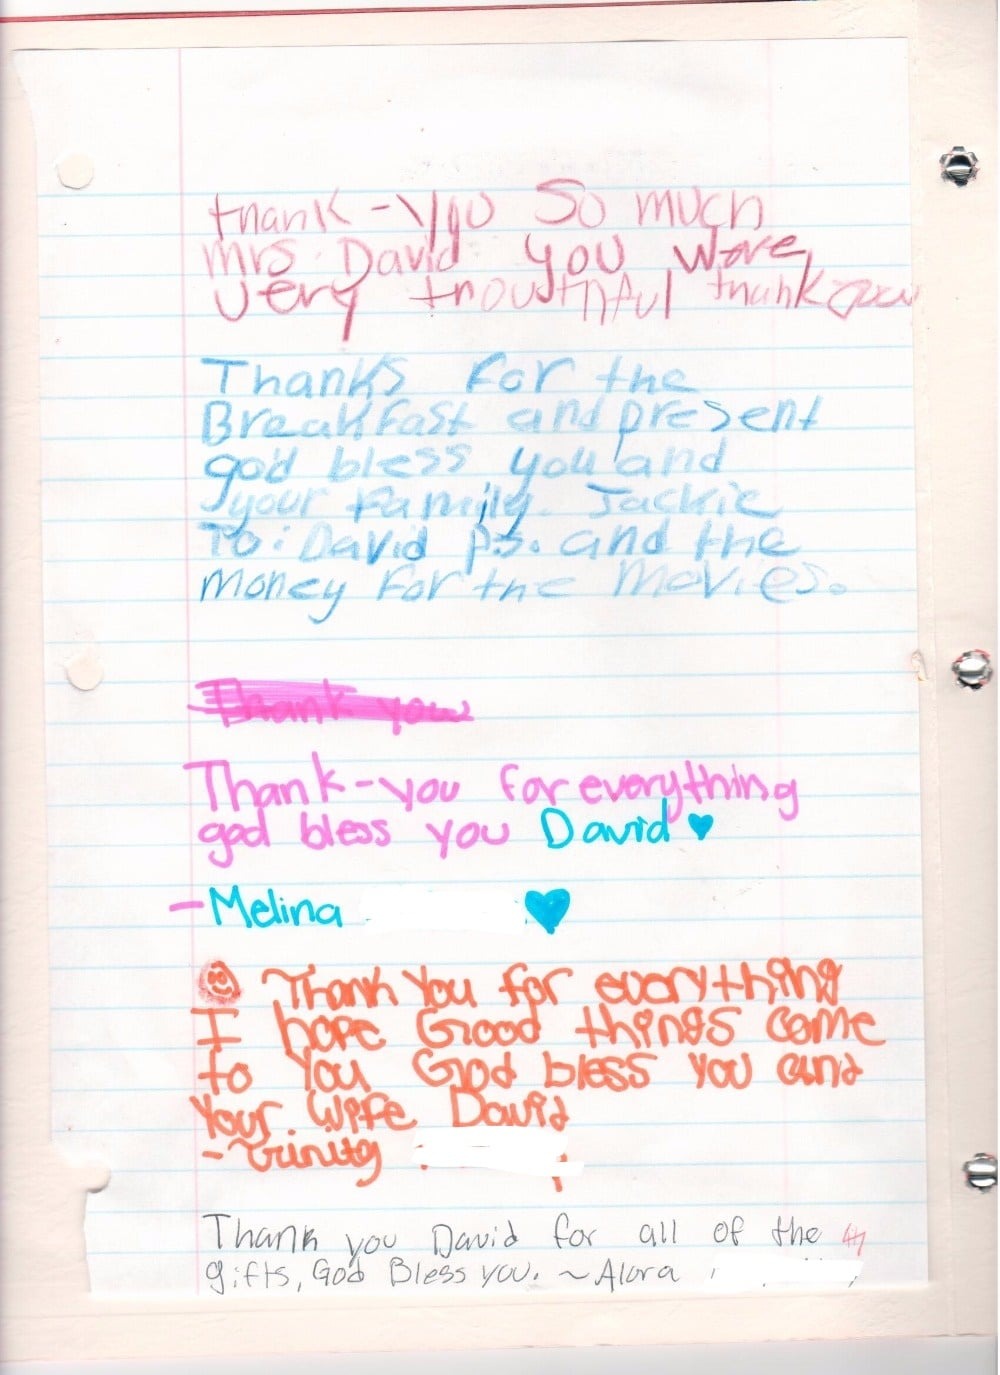 thank-you So much
mrs. David you were
very thouthful thank you
Thanks For the
Breakfast and present
god bless you and
your Family. Jackie
To: David p.s. and the
money for the movies.
Thank you
Thank-you for everything
god bless you David
- Melina
Thank You for everything
I hope Good things come
to You God bless you and
Your wife David
- Trinity
Thank you David for all of the
gifts, God Bless you. ~ Alora